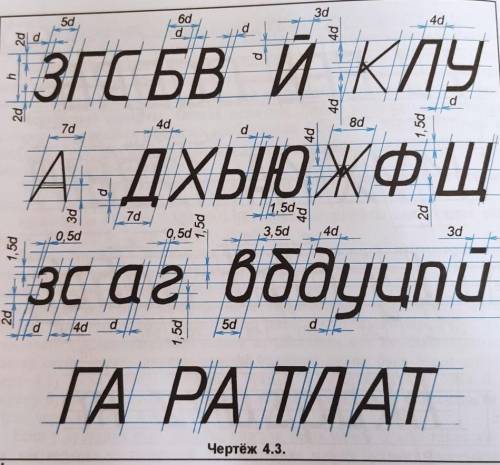 5d 6d 3d 4d
2d d d d d 4d
ЗГСБВ Й КЛУ
h
2d 4d d
7d 4d d 4d 8d 1,5d
А ДХЫЮЖФЩ
3d d 7d 1,5d 4d 2d
0,5d 0,5d 1,5d 3,5d 4d 3d
1,5d
зс аг вбдуцпй
2d d 4d d 1,5d 5d d
ГА РА ТЛАТ
Чертёж 4.3.